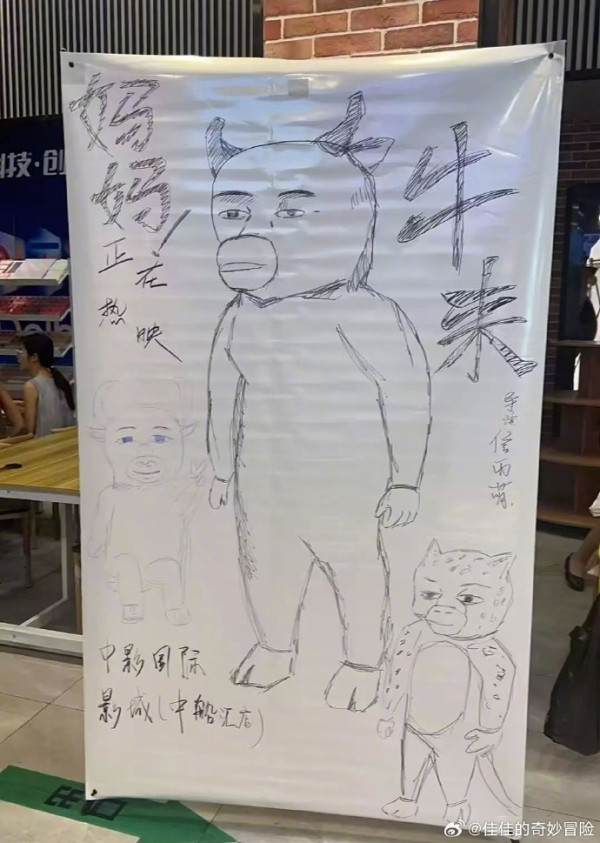 妈妈！
正在
热映
牛来
导演 雨萌
中影国际
影城(中船汇店)
科技·创
出口
@佳佳的奇妙冒险